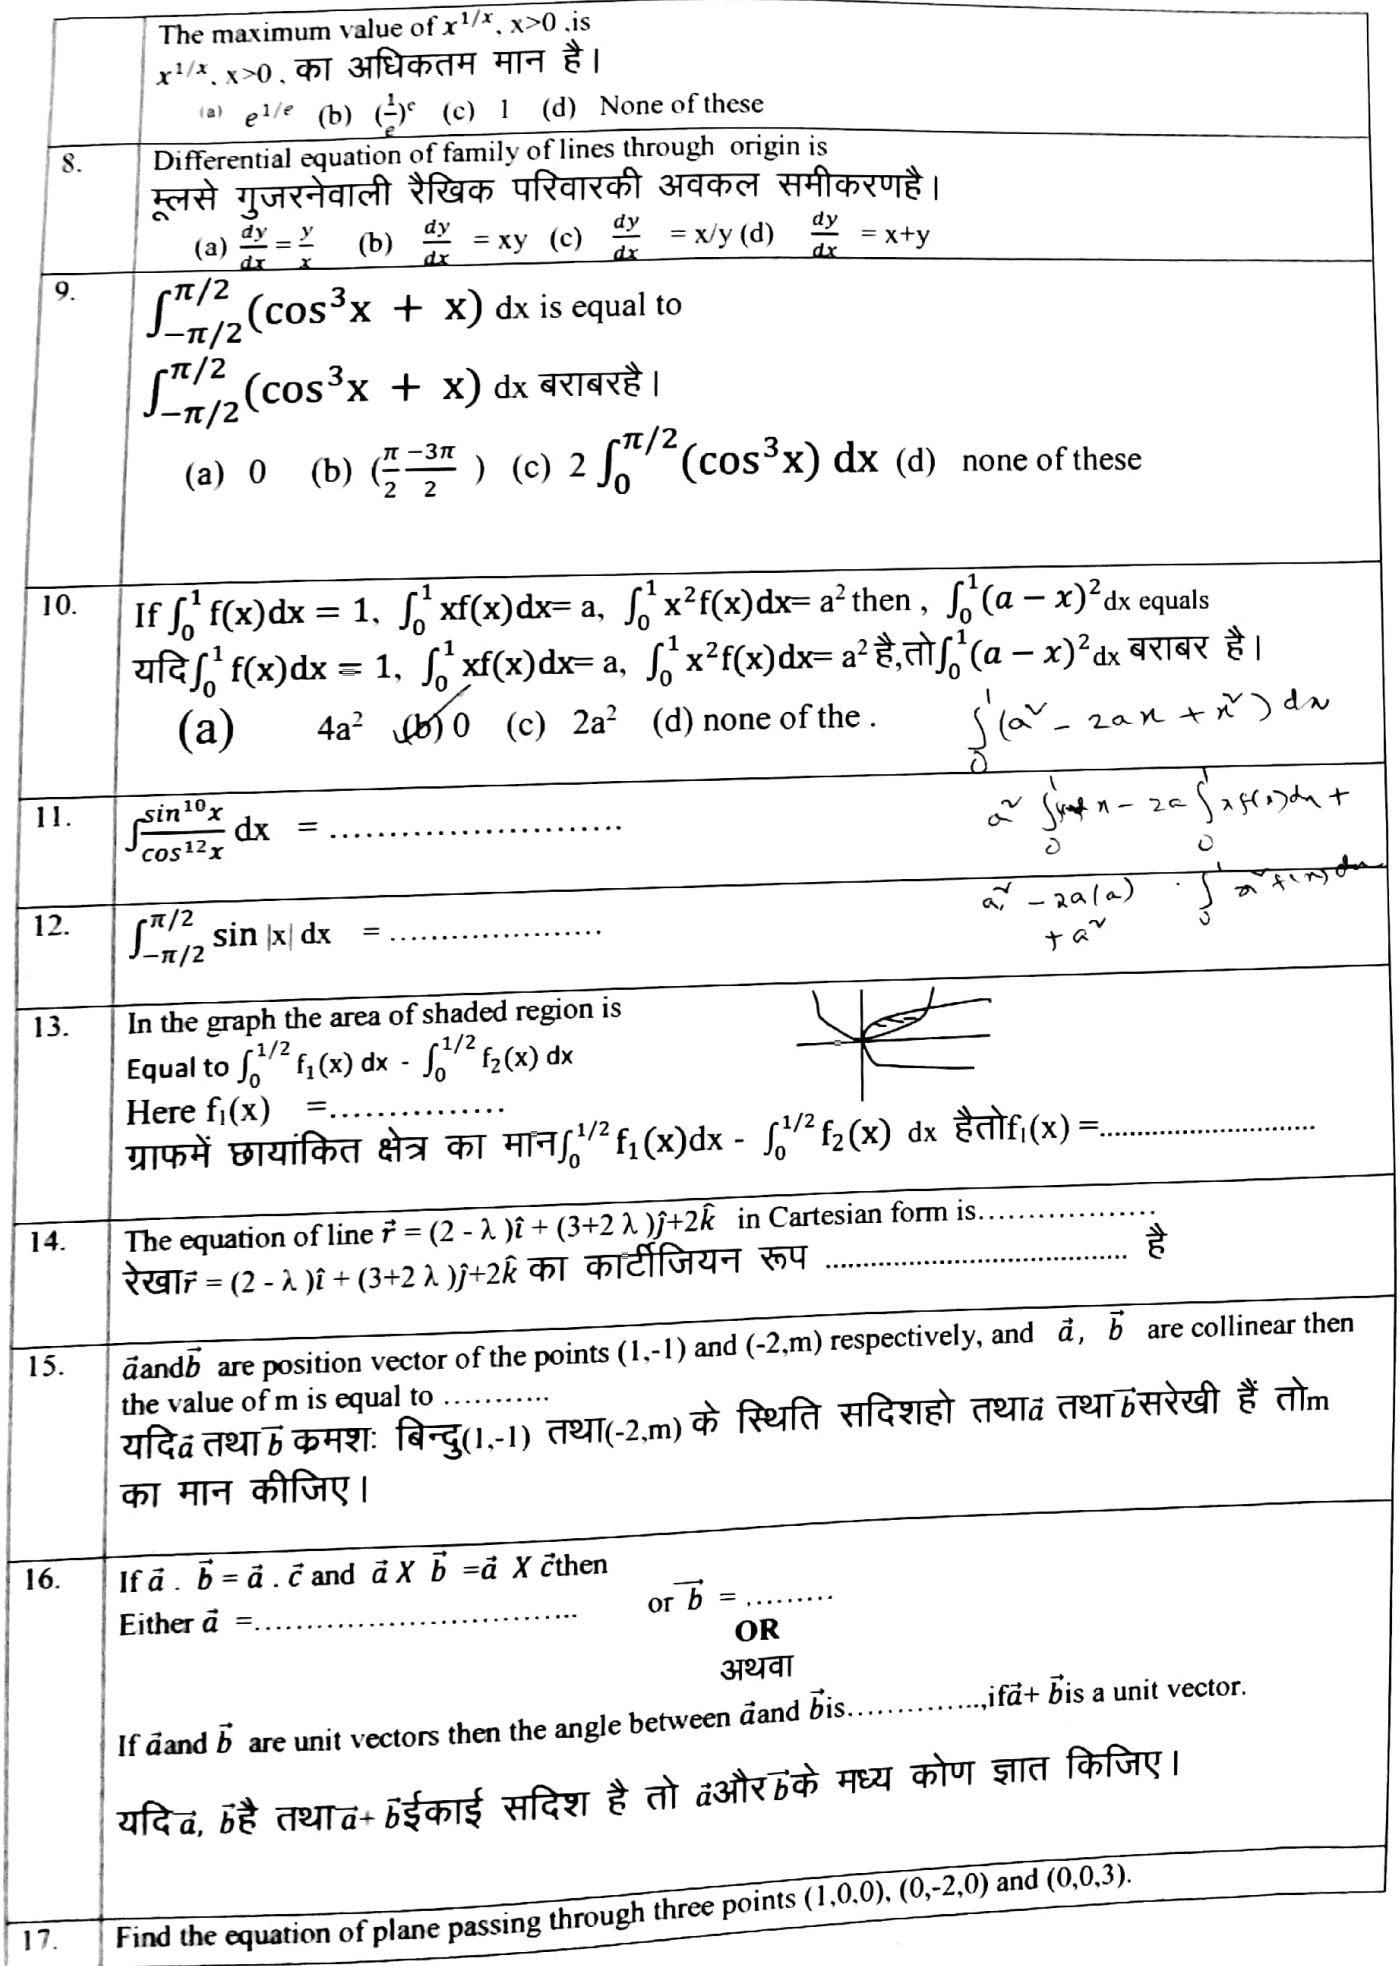 The maximum value of x^{1/x}, x>0 ,is
x^{1/x}, x>0, का अधिकतम मान है।
(a) e^{1/e} (b) (1/e)^e (c) 1 (d) None of these
8. Differential equation of family of lines through origin is
मूलसे गुजरनेवाली रैखिक परिवारकी अवकल समीकरणहै।
(a) dy/dx = y/x (b) dy/dx = xy (c) dy/dx = x/y (d) dy/dx = x+y
9. ∫_{-π/2}^{π/2} (cos³x + x) dx is equal to
∫_{-π/2}^{π/2} (cos³x + x) dx बराबरहै।
(a) 0 (b) (π/2 -3π/2 ) (c) 2 ∫_0^{π/2} (cos³x) dx (d) none of these
10. If ∫_0^1 f(x)dx = 1, ∫_0^1 xf(x)dx= a, ∫_0^1 x²f(x)dx= a² then , ∫_0^1 (a − x)² dx equals
यदि∫_0^1 f(x)dx = 1, ∫_0^1 xf(x)dx= a, ∫_0^1 x²f(x)dx= a² है,तो∫_0^1 (a − x)² dx बराबर है।
(a) 4a² (b) 0 (c) 2a² (d) none of the .
∫_0^1 (a² - 2ax + x²) dx
11. ∫ sin¹⁰x/cos¹²x dx = ..........................
a² ∫_0^1 x - 2a ∫_0^1 x f(x) dx +
∫_0^1 x² f(x) dx
12. ∫_{-π/2}^{π/2} sin |x| dx = ....................
a² - 2a(a)
+ a²
13. In the graph the area of shaded region is
Equal to ∫_0^{1/2} f₁(x) dx - ∫_0^{1/2} f₂(x) dx
Here f₁(x) =................
ग्राफमें छायांकित क्षेत्र का मान∫_0^{1/2} f₁(x)dx - ∫_0^{1/2} f₂(x) dx हैतोf₁(x) =............................
14. The equation of line r⃗ = (2 - λ )î + (3+2 λ )ĵ+2k̂ in Cartesian form is..................
रेखाr⃗ = (2 - λ )î + (3+2 λ )ĵ+2k̂ का कार्टीजियन रूप ....................................... है
15. a⃗andb⃗ are position vector of the points (1,-1) and (-2,m) respectively, and a⃗, b⃗ are collinear then
the value of m is equal to ...........
यदिa⃗ तथाb⃗ कमशः बिन्दु(1,-1) तथा(-2,m) के स्थिति सदिशहो तथाa⃗ तथाb⃗सरेखी हैं तोm
का मान कीजिए।
16. If a⃗ . b⃗ = a⃗ . c⃗ and a⃗ X b⃗ =a⃗ X c⃗then
Either a⃗ =................................. or b⃗ = .........
OR
अथवा
If a⃗and b⃗ are unit vectors then the angle between a⃗and b⃗is..............,ifa⃗+ b⃗is a unit vector.
यदिa⃗, b⃗है तथाa⃗+ b⃗ईकाई सदिश है तो a⃗औरb⃗के मध्य कोण ज्ञात किजिए।
17. Find the equation of plane passing through three points (1,0,0), (0,-2,0) and (0,0,3).